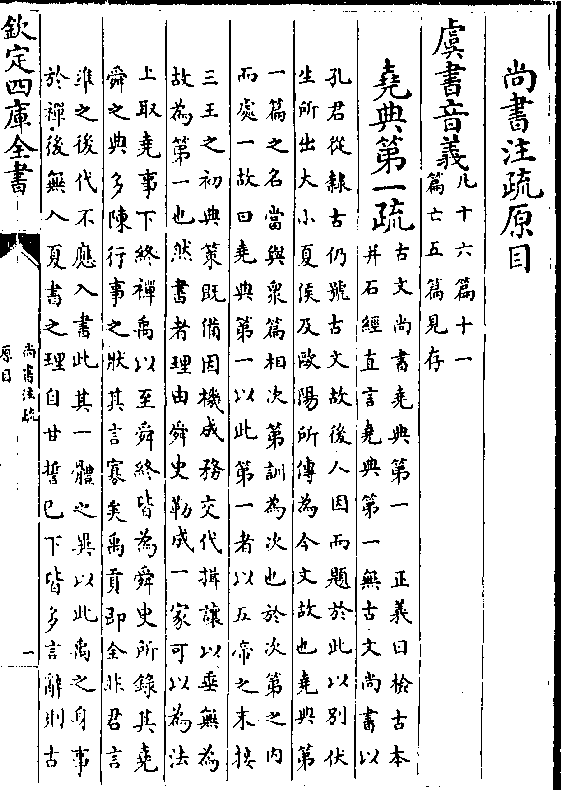 尚書注疏原目
虞書音義凡十六篇十一
篇亡五篇見存
堯典第一疏古文尚書堯典第一　正義曰檢古本
并石經直言堯典第一無古文尚書以
孔君從隸古仍號古文故後人因而題於此以別伏
生所出大小夏侯及歐陽所傳為今文故也堯典第
一篇之名當與衆篇相次第訓為次也於次第之内
而處一故曰堯典第一以此第一者以五帝之末接
三王之初典策既備因機成務交代揖讓以垂無為
故為第一也然書者理由舜史勒成一家可以為法
上取堯事下終禪禹以至舜終皆為舜史所錄其堯
舜之典多陳行事之狀其言寡矣禹貢即全非君言
準之後代不應入書此其一體之異以此禹之身事
於禪後無入夏書之理自甘誓已下皆多言辭則古
欽定四庫全書
尚書注疏
原目
一